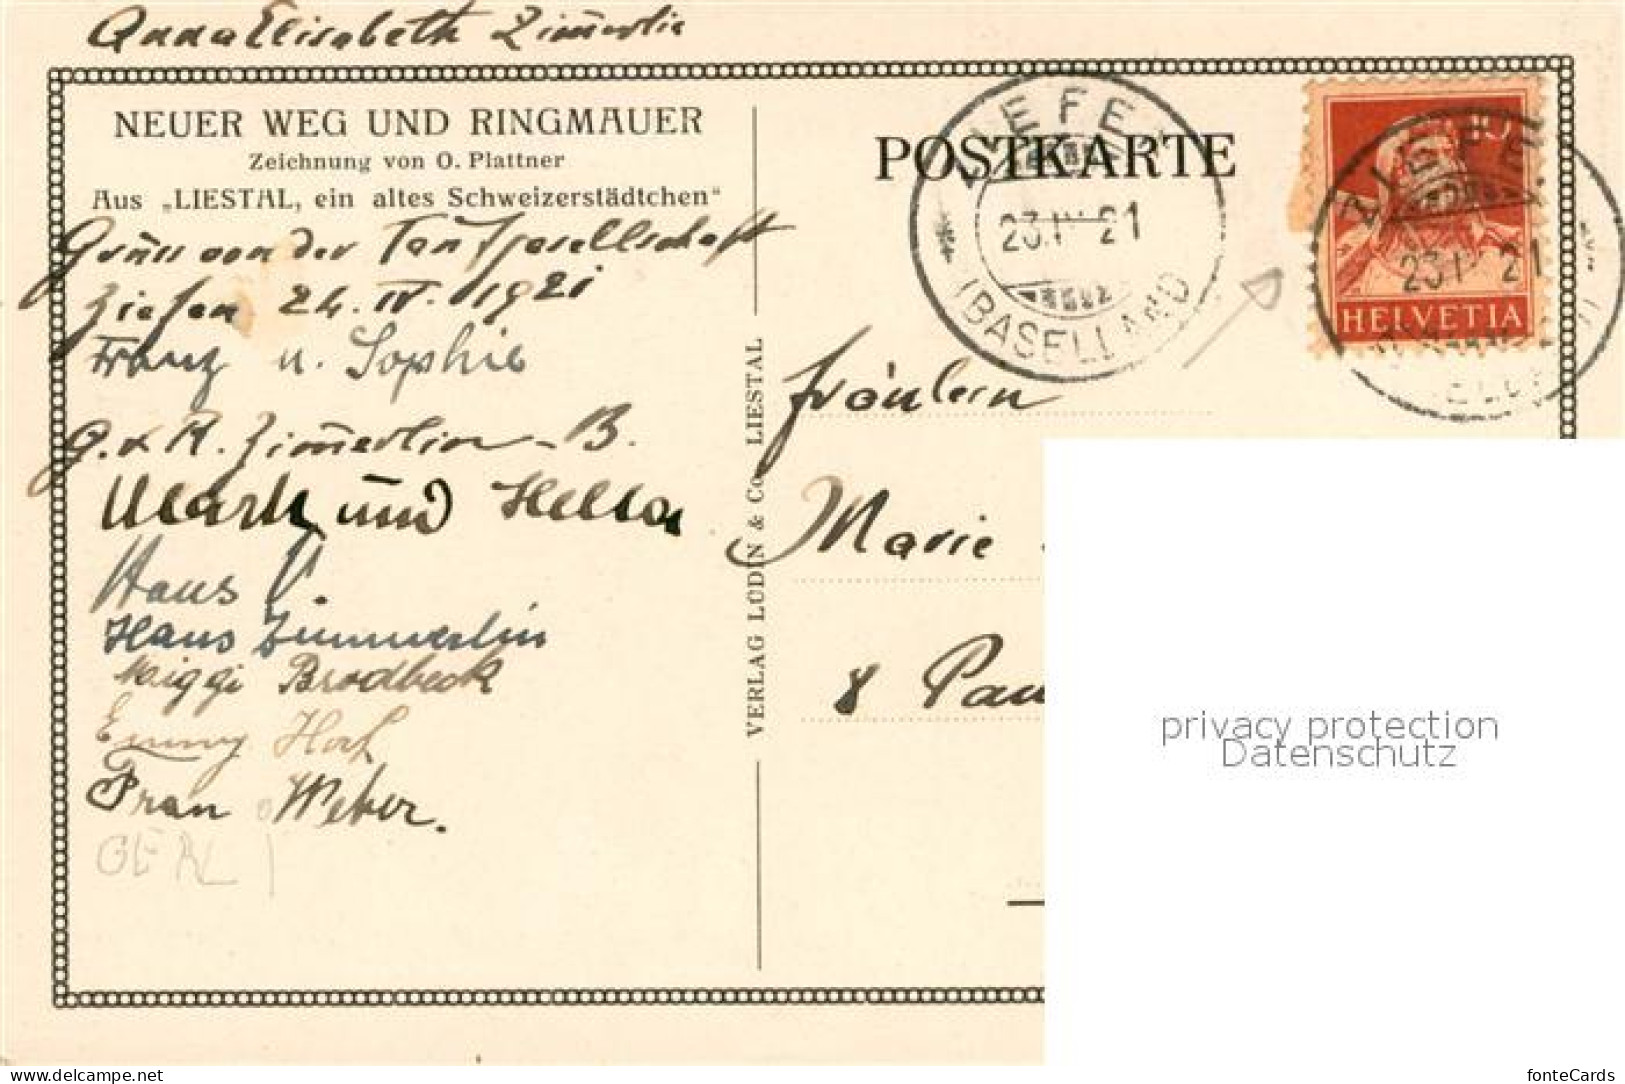 Anna Elisabeth Zimmerlin
NEUER WEG UND RINGMAUER
Zeichnung von O. Plattner
Aus „LIESTAL, ein altes Schweizerstädtchen"
Gruss von der Taufgesellschaft
Ziefen 24. IV. 1921
Franz u. Sophie
G. & R. Zimmerlin-B.
und Hella
Hans V.
Hans Zimmerlin
Miggi Brodbeck
Emmy Hof
Frau Weber.
VERLAG LUDIN & Co LIESTAL
POSTKARTE
ZIEFEN
23.IV. 21
(BASELLAND)
10
HELVETIA
ZIEFEN
23.IV. 21
Fräulein
Marie
8 Pau
privacy protection
Datenschutz
www.delcampe.net
fonteCards